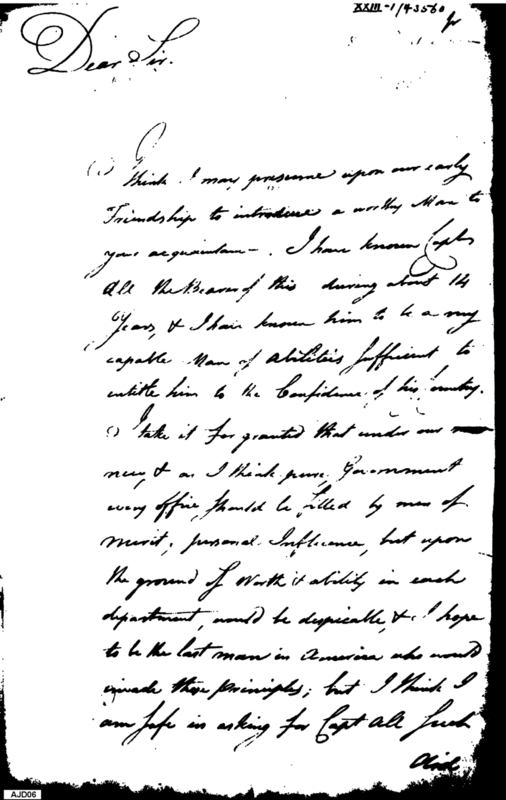 XXIII-1/43560
Dear Sir.
I think I may presume upon our early
Friendship to introduce a worthy Man to
your acquaintance. I have known Captn
All the Bearer of this during about 14
Years, & I have known him to be a very
capable Man of abilities sufficient to
entitle him to the Confidence of his Country.
I take it for granted that under our
new, & as I think pure, Government
every office, should be filled by men of
merit; personal Influence, but upon
the ground of Worth & ability in each
department, would be despicable, & I hope
to be the last man in America who would
invade those principles; but I think I
am safe in asking for Capt All such
Aid
AJD06